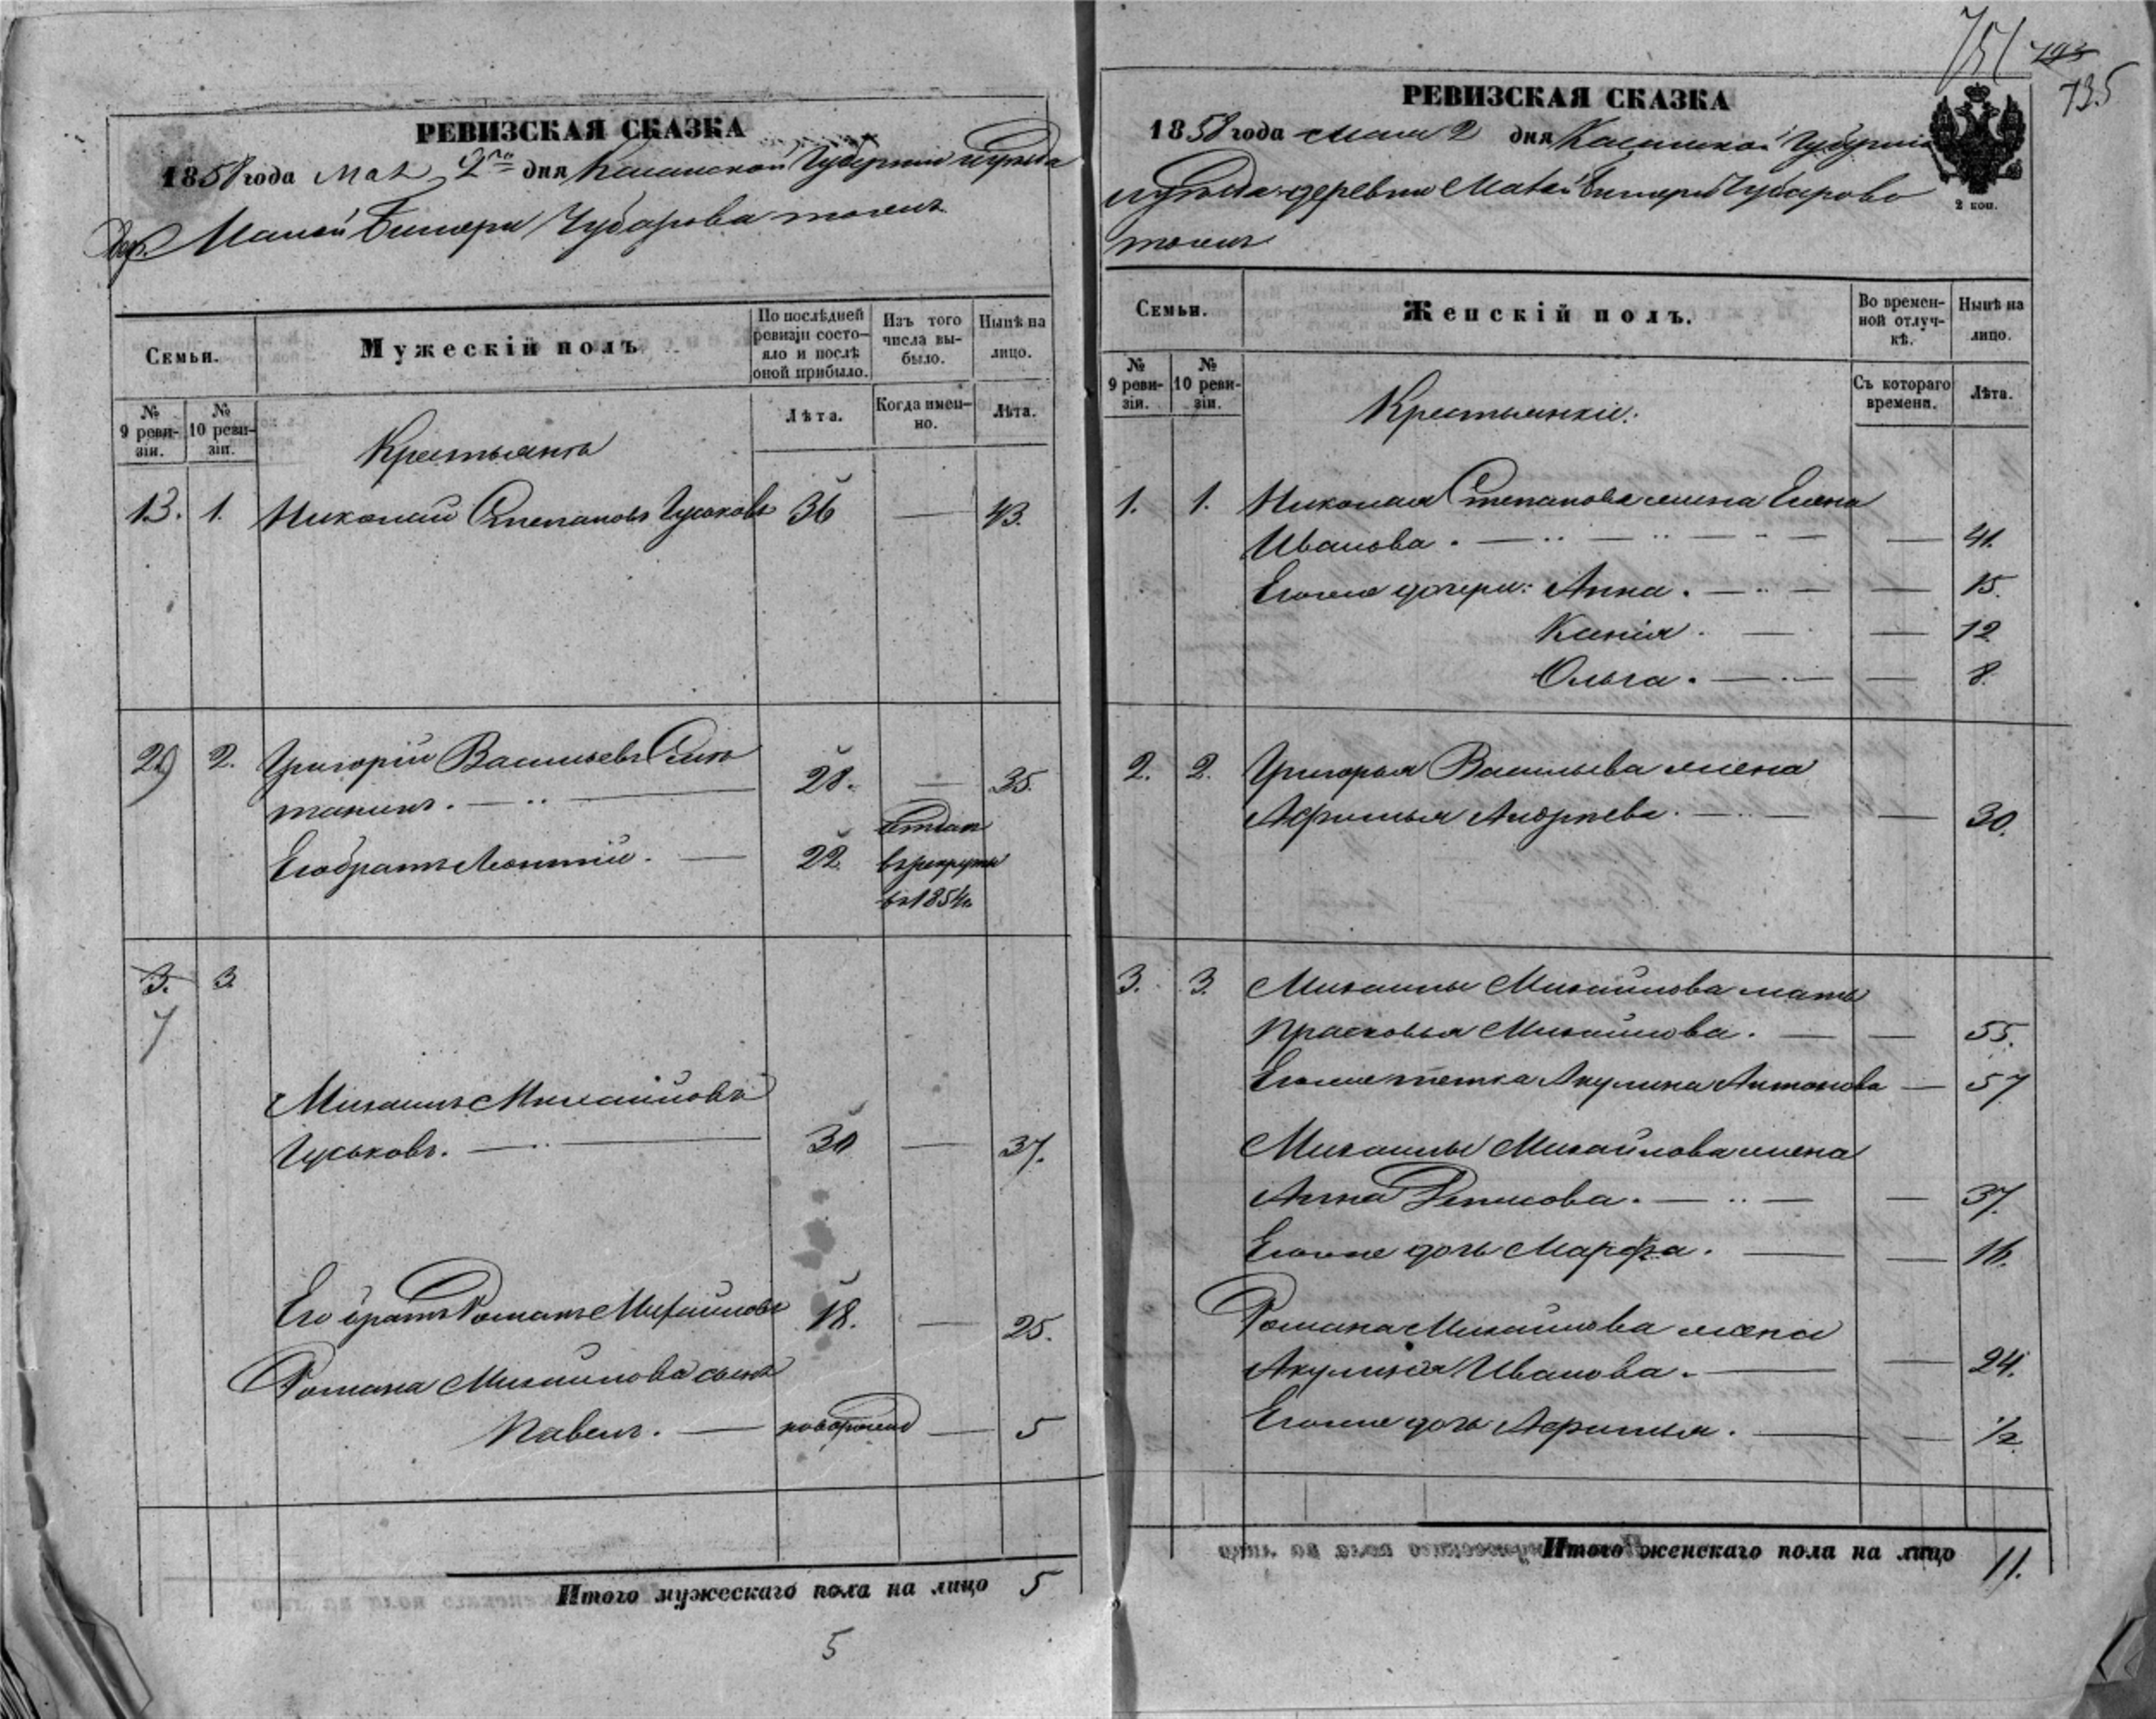 РЕВИЗСКАЯ СКАЗКА
1858 года Мая 2го дня Казанской Губерніи и уѣзда
Дер. Малой Битери Чубарова тожъ
Семьи.
Мужескій полъ
По послѣдней ревизіи состояло и послѣ оной прибыло.
Изъ того числа выбыло.
Нынѣ на лицо.
№ 9 ревизіи.
№ 10 ревизіи.
Лѣта.
Когда именно.
Лѣта.
Крестьяне
13. 1. Николай Степановъ Гуськовъ 36 — 43.
2. Григорій Васильевъ
28. — 35.
Его братъ Леонтій. — 22. Отданъ
въ рекруты
въ 1854 г.
3. 3.
7
Михаилъ Михайловъ
Гуськовъ. — 30 — 37.
Его братъ Романъ Михайловъ 18. — 25.
Романа Михайлова сынъ
Павелъ. — новорожд — 5
Итого мужескаго пола на лицо 5
5
751 793
735
РЕВИЗСКАЯ СКАЗКА
1858 года Мая 2 дня Казанской Губерніи
и уѣзда деревни Малой Битери Чубарово
тожъ
2 коп.
Семьи.
Женскій полъ.
Во временной отлучкѣ.
Нынѣ на лицо.
№ 9 ревизіи.
№ 10 ревизіи.
Съ котораго времени.
Лѣта.
Крестьянки.
1. 1. Николая Степанова жена Елена
Иванова. — 41.
Егоже дочери: Анна. — 15.
Ксенія. — 12
Ольга. — 8.
2. 2. Григорья Васильева жена
Афимья Андреева. — 30.
3. 3. Михаилы Михайлова мать
Прасковья Михайлова. — 55.
Егоже тетка Акулина Антонова — 57
Михаилы Михайлова жена
Анна Денисова. — 37.
Егоже дочь Марфа. — 16.
Романа Михайлова жена
Акулина Иванова. — 24.
Егоже дочь Афимья. — 1/2
Итого женскаго пола на лицо 11.